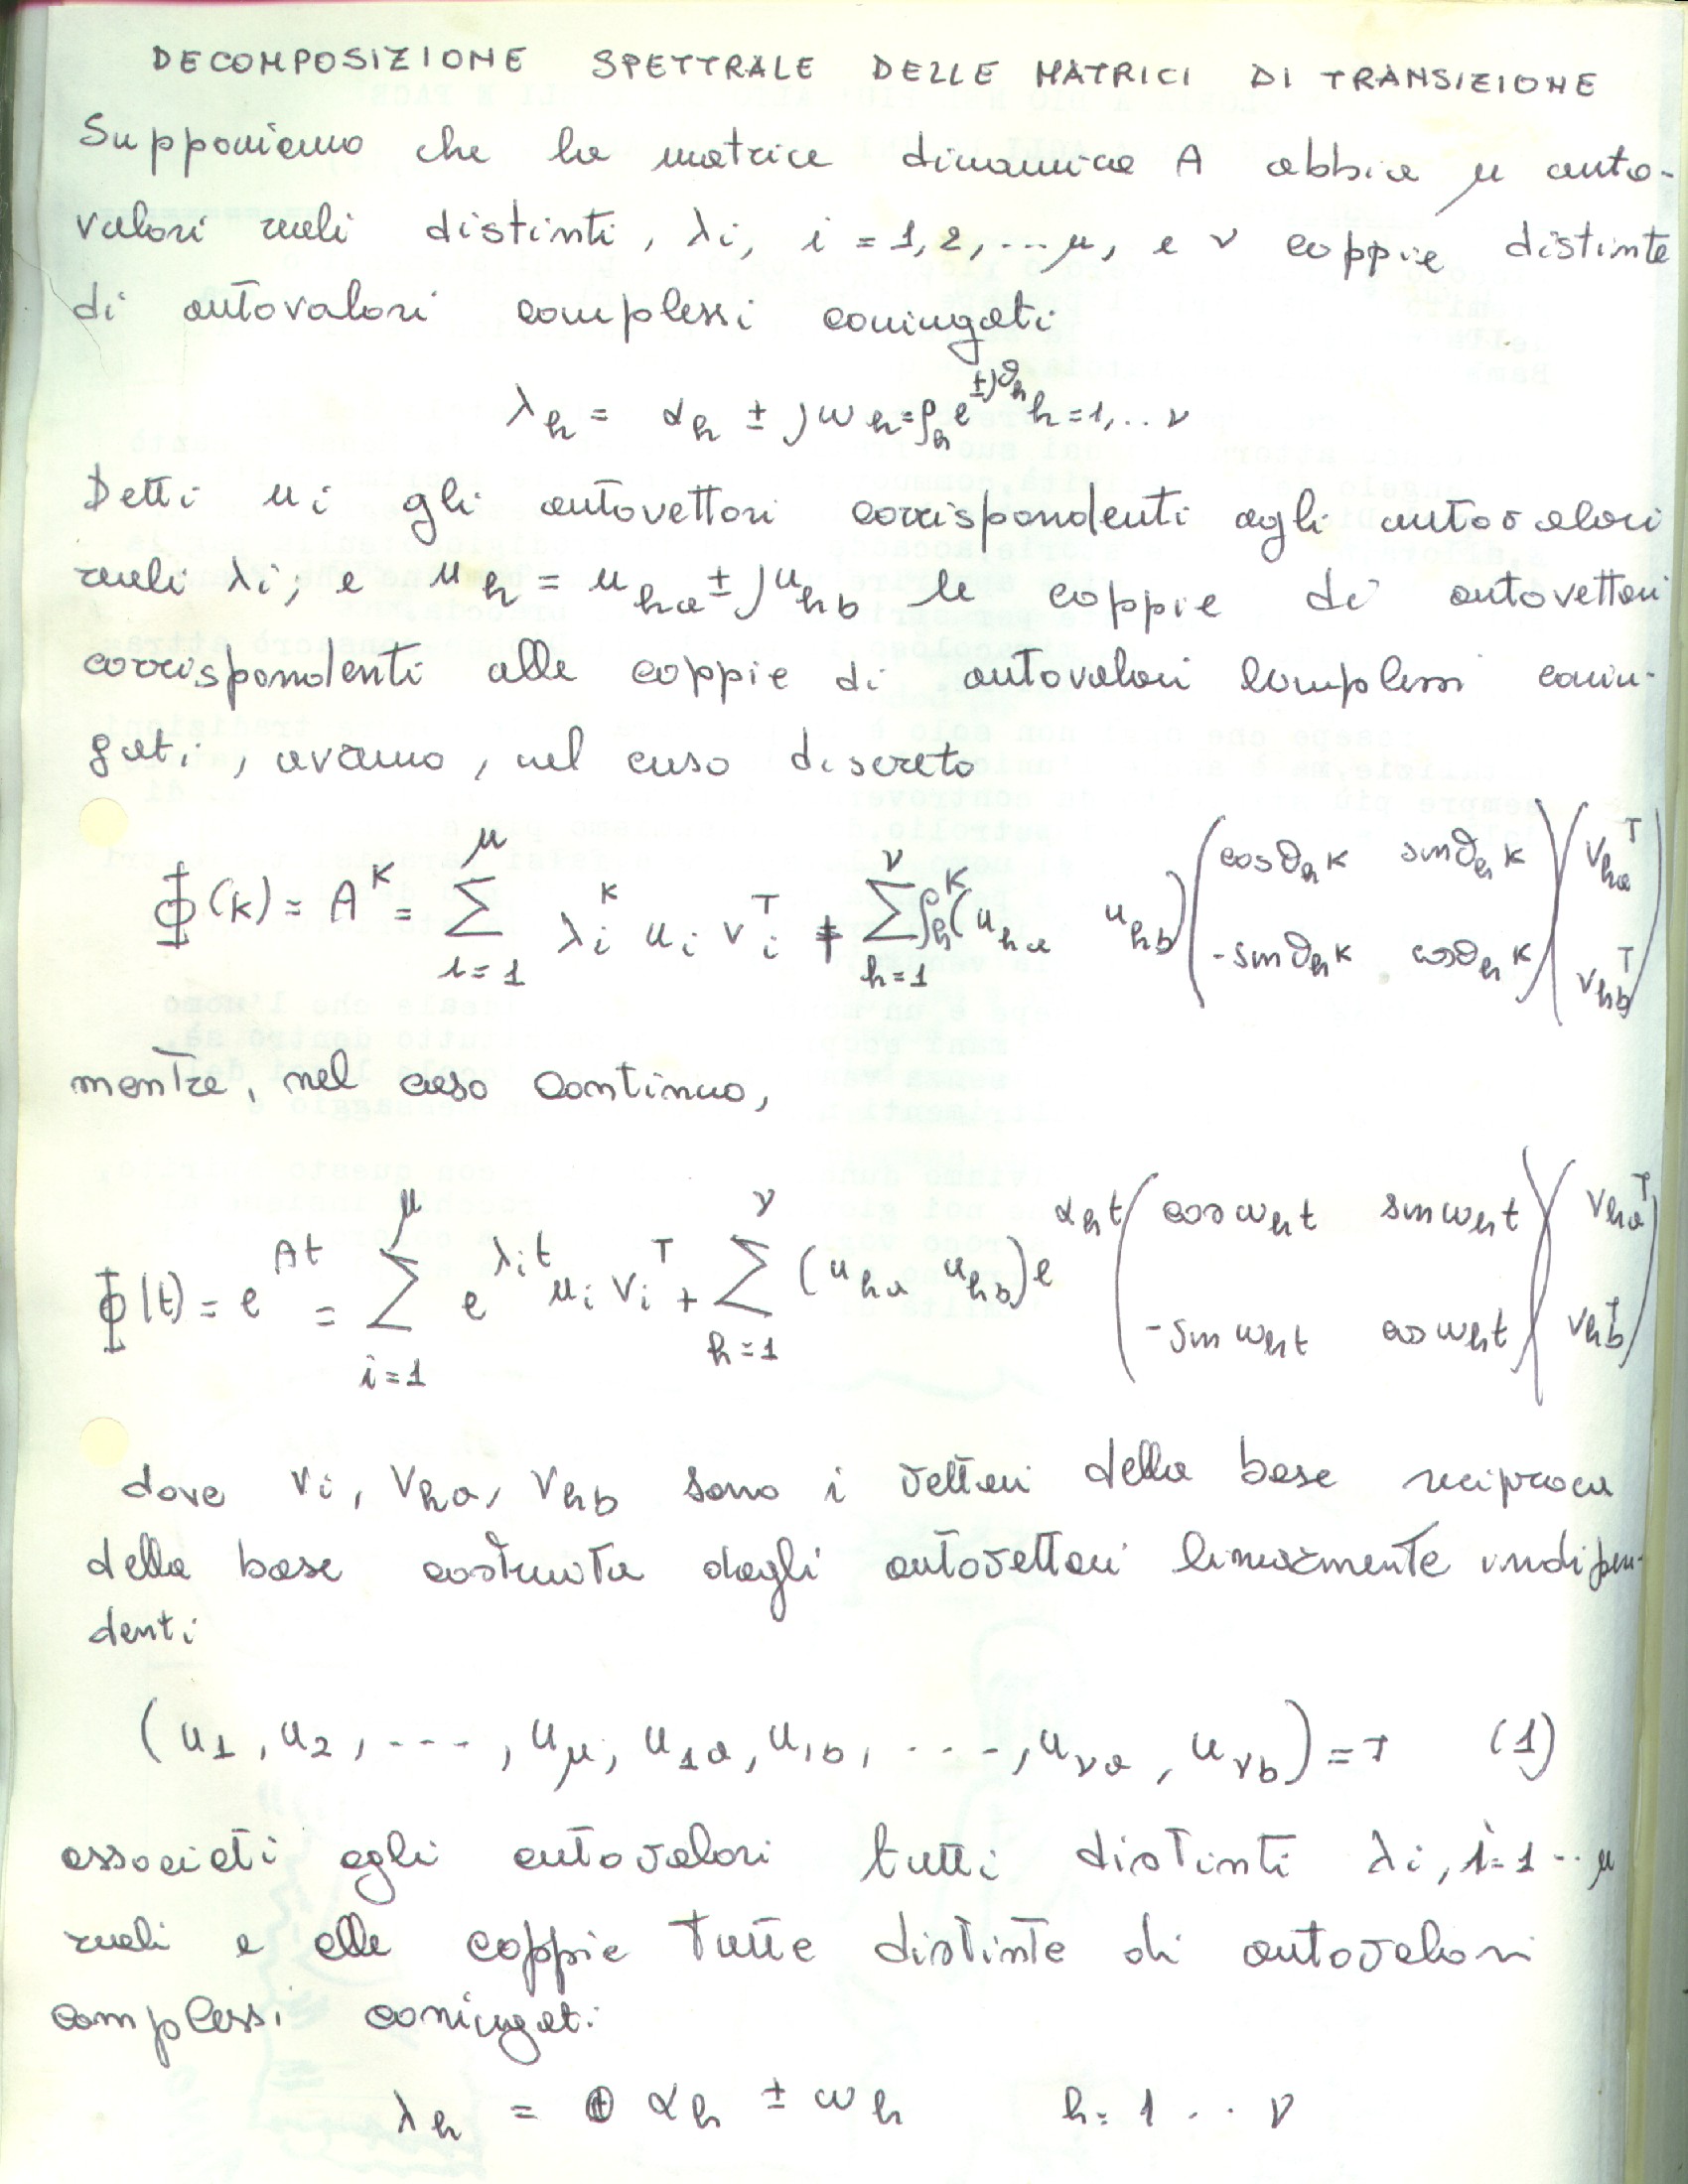 DECOMPOSIZIONE SPETTRALE DELLE MATRICI DI TRANSIZIONE
Supponiamo che la matrice dinamica A abbia μ auto-
valori reali distinti, λi, i = 1, 2, ... μ, e ν coppie distinte
di autovalori complessi coniugati
λ_h = α_h ± jω_h = ρ_h e^{±jϑ_h} h = 1, .. ν
Detti ui gli autovettori corrispondenti agli autovalori
reali λi, e u_h = u_ha ± ju_hb le coppie di autovettori
corrispondenti alle coppie di autovalori complessi coniu-
gati, avremo, nel caso discreto
Φ(k) = A^K = Σ_{i=1}^{μ} λ_i^K u_i v_i^T + Σ_{h=1}^{ν} ρ_h^K (u_ha u_hb) ( cosϑ_hK sinϑ_hK ; -sinϑ_hK cosϑ_hK ) ( v_ha^T ; v_hb^T )
mentre, nel caso continuo,
Φ(t) = e^{At} = Σ_{i=1}^{μ} e^{λ_i t} u_i v_i^T + Σ_{h=1}^{ν} (u_ha u_hb) e^{α_h t} ( cos ω_h t sin ω_h t ; -sin ω_h t cos ω_h t ) ( v_ha^T ; v_hb^T )
dove vi, v_ha, v_hb sono i vettori della base reciproca
della base costruita dagli autovettori linearmente indipen-
denti
(u_1, u_2, ----, u_μ, u_1a, u_1b, ----, u_νa, u_νb) = T (1)
associati agli autovalori tutti distinti λi, i=1 .. μ
reali e alle coppie tutte distinte di autovalori
complessi coniugati
λ_h = α_h ± ω_h h = 1 .. ν